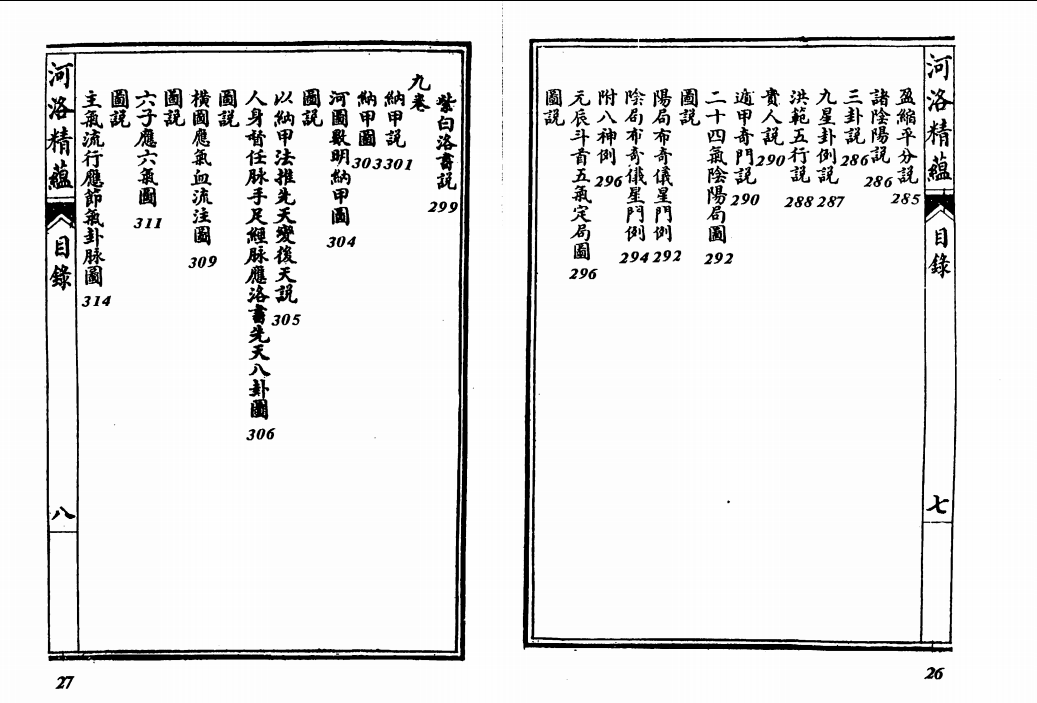 河洛精蘊
目錄
七
盈縮平分說 285
諸陰陽說 286
三卦說 286
九星卦例說 287
洪範五行說 288
貴人說 290
遁甲奇門說 290
二十四氣陰陽局圖 292
圖說
陽局布奇儀星門例 292
陰局布奇儀星門例 294
附八神例 296
元辰斗首五氣定局圖 296
圖說
26
紫白洛書說 299
九卷
納甲說 301
納甲圖 303
河圖數明納甲圖 304
圖說
以納甲法推先天變後天說 305
人身督任脉手足經脉應洛書先天八卦圖 306
圖說
橫圖應氣血流注圖 309
圖說
六子應六氣圖 311
圖說
主氣流行應節氣卦脉圖 314
河洛精蘊
目錄
八
27